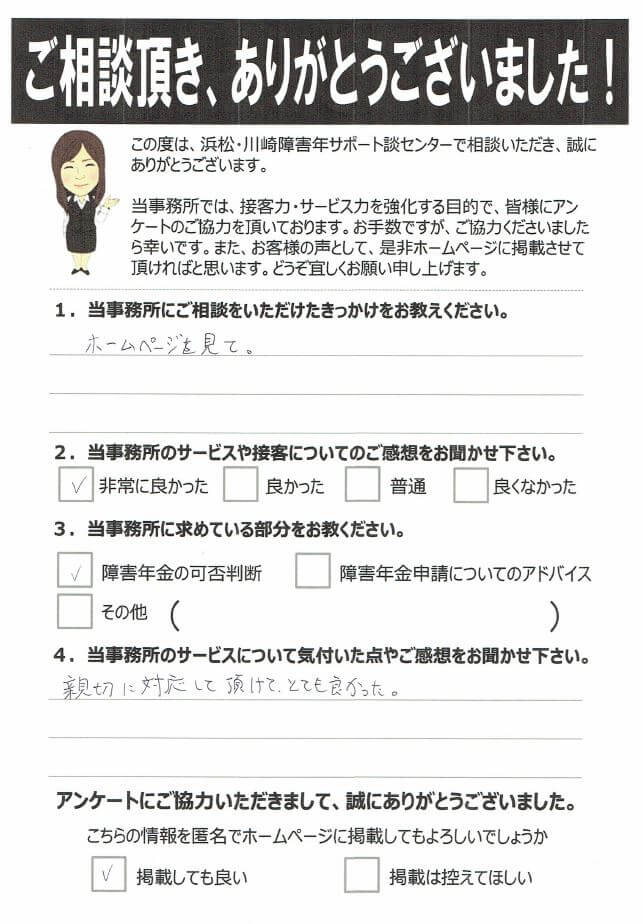 ご相談頂き、ありがとうございました！
この度は、浜松・川崎障害年サポート談センターで相談いただき、誠に
ありがとうございます。
当事務所では、接客力・サービス力を強化する目的で、皆様にアン
ケートのご協力を頂いております。お手数ですが、ご協力くださいました
ら幸いです。また、お客様の声として、是非ホームページに掲載させて
頂ければと思います。どうぞ宜しくお願い申し上げます。
１．当事務所にご相談をいただけたきっかけをお教えください。
ホームページを見て。
２．当事務所のサービスや接客についてのご感想をお聞かせ下さい。
✓ 非常に良かった 良かった 普通 良くなかった
３．当事務所に求めている部分をお教ください。
✓ 障害年金の可否判断 障害年金申請についてのアドバイス
その他 （ ）
４．当事務所のサービスについて気付いた点やご感想をお聞かせ下さい。
親切に対応して頂けて、とても良かった。
アンケートにご協力いただきまして、誠にありがとうございました。
こちらの情報を匿名でホームページに掲載してもよろしいでしょうか
✓ 掲載しても良い 掲載は控えてほしい